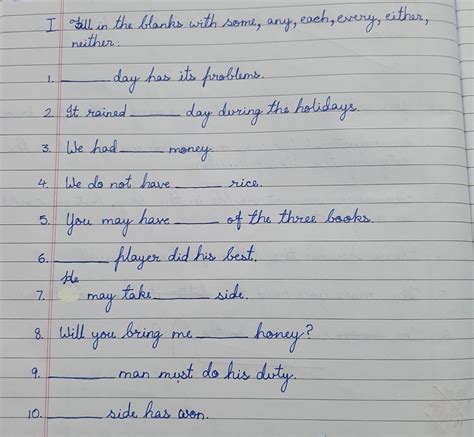 I Fill in the blanks with some, any, each, every, either,
neither.
1. ______ day has its problems.
2. It rained ______ day during the holidays.
3. We had ______ money.
4. We do not have ______ rice.
5. You may have ______ of the three books.
6. ______ player did his best.
7. He may take ______ side.
8. Will you bring me ______ honey?
9. ______ man must do his duty.
10. ______ side has won.